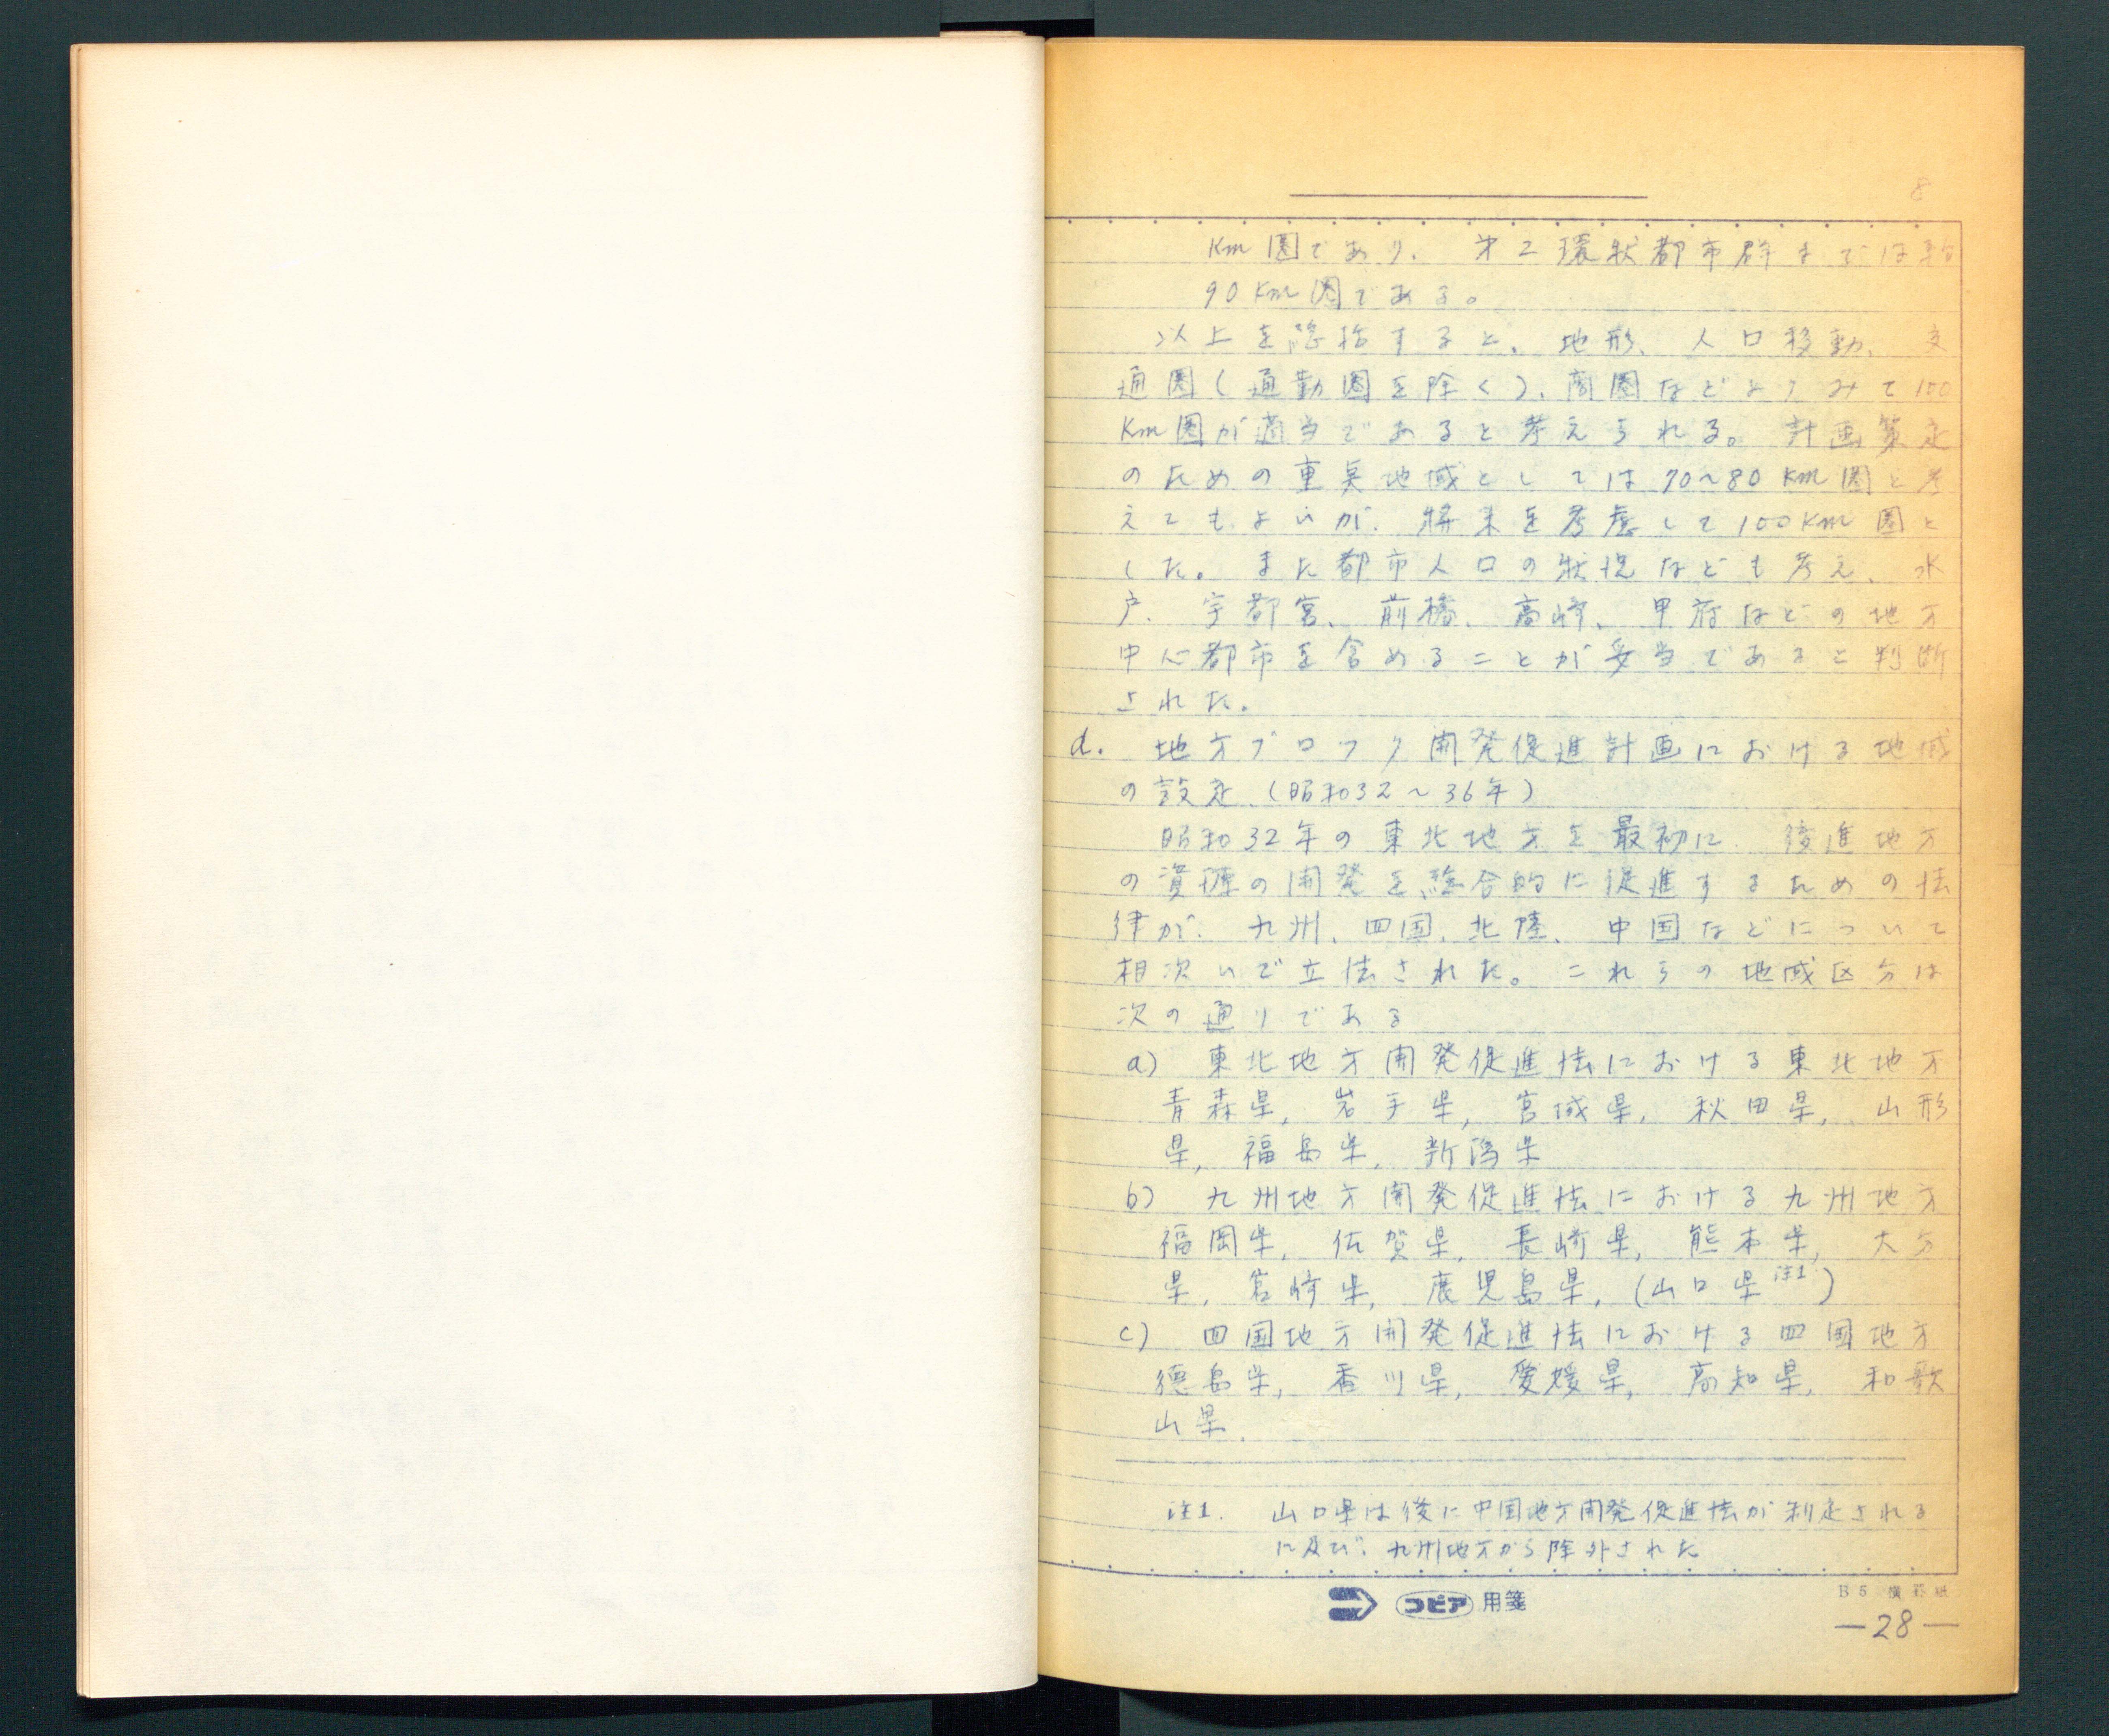 8
Km圏であり、第2環状都市群までは
90Km圏である。
以上を総括すると、地形、人口移動、交
通圏(通勤圏を除く)、商圏などよりみて100
Km圏が適当であると考えられる。計画策定
のための重点地域としては70~80Km圏と考
えてもよいが、将来を考慮して100Km圏と
した。また都市人口の状況なども考え、水
戸、宇都宮、前橋、高崎、甲府などの地方
中心都市を含めることが妥当であると判断
された。
d. 地方ブロック開発促進計画における地域
の設定(昭和32~36年)
昭和32年の東北地方を最初に、後進地方
の資源の開発を総合的に促進するための法
律が、九州、四国、北陸、中国などについて
相次いで立法された。これらの地域区分は
次の通りである
a) 東北地方開発促進法における東北地方
青森県, 岩手県, 宮城県, 秋田県, 山形
県, 福島県, 新潟県
b) 九州地方開発促進法における九州地方
福岡県, 佐賀県, 長崎県, 熊本県, 大分
県, 宮崎県, 鹿児島県, (山口県 注1)
c) 四国地方開発促進法における四国地方
徳島県, 香川県, 愛媛県, 高知県, 和歌
山県.
注1. 山口県は後に中国地方開発促進法が制定される
に及び、九州地方から除外された
コピア 用箋
B5 横罫紙
—28—